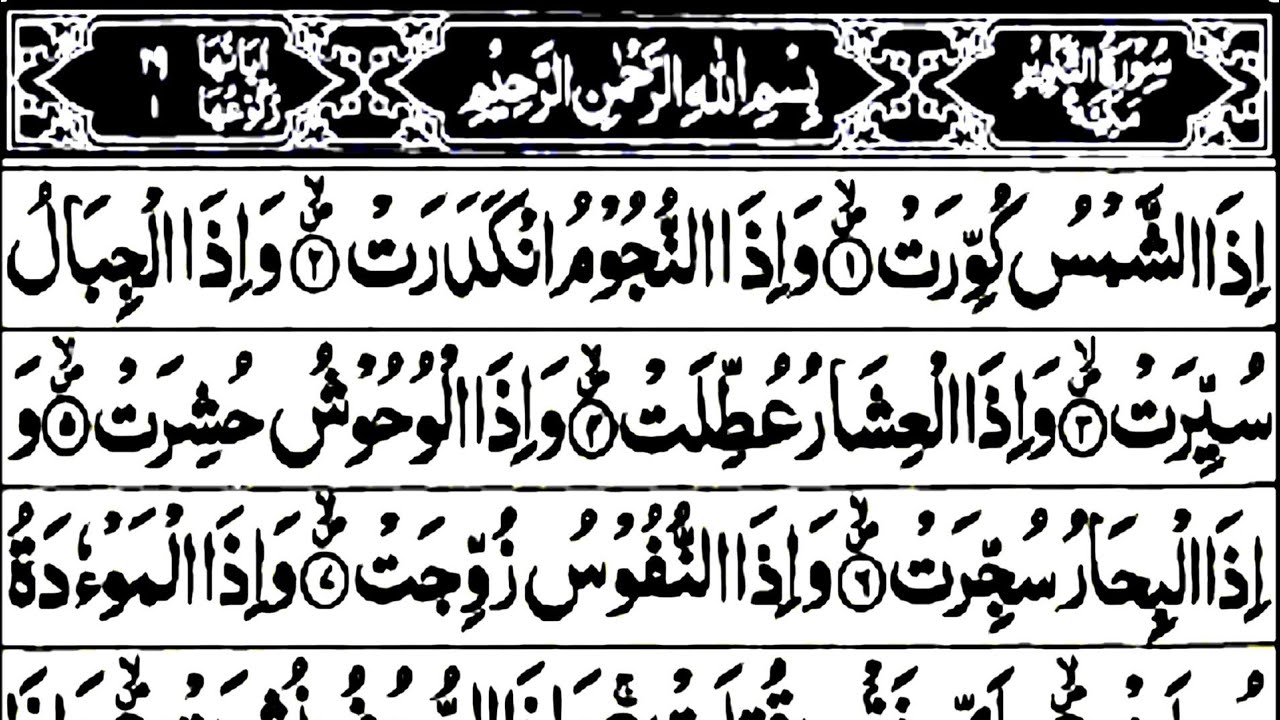 سُوْرَةُ التَّكْوِيْرِ مَكِّيَّةٌ بِسْمِ اللّٰهِ الرَّحْمٰنِ الرَّحِيْمِ اٰيَاتُهَا ٢٩ رُكُوْعُهَا ١
اِذَا الشَّمْسُ كُوِّرَتْ ۪ۙ﴿۱﴾ وَاِذَا النُّجُوْمُ انْكَدَرَتْ ۪ۙ﴿۲﴾ وَاِذَا الْجِبَالُ
سُيِّرَتْ ۪ۙ﴿۳﴾ وَاِذَا الْعِشَارُ عُطِّلَتْ ۪ۙ﴿۴﴾ وَاِذَا الْوُحُوْشُ حُشِرَتْ ۪ۙ﴿۵﴾ وَ
اِذَا الْبِحَارُ سُجِّرَتْ ۪ۙ﴿۶﴾ وَاِذَا النُّفُوْسُ زُوِّجَتْ ۪ۙ﴿۷﴾ وَاِذَا الْمَوْءٗدَةُ